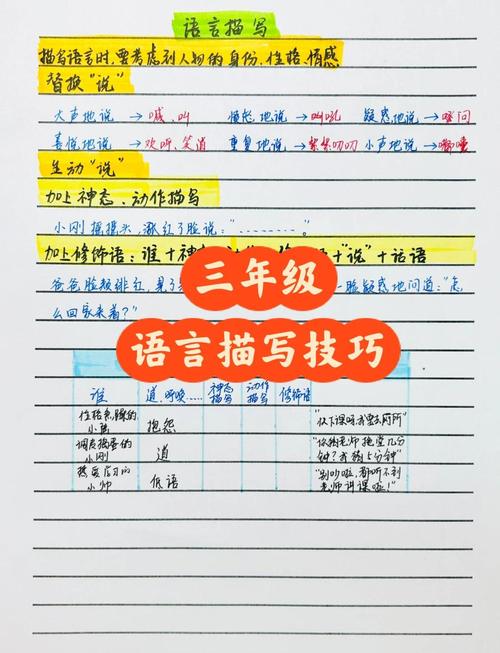 语言描写
描写语言时,要考虑到人物的身份、性格、情感
替换“说”
大声地说→喊、叫 愤怒地说→叫吼 疑惑地说→
喜悦地说→欢呼、笑道 重复地说→絮絮叨叨 小声地说→嘟囔
生动“说”
加上神态、动作描写
小刚摇摇头,涨红了脸说:“………”
加上修饰语:谁+神 +“说”+话语
爸爸脸颊绯红,晃 一脸疑惑地问道:“怎
么回家来着?”
三年级
语言描写技巧
谁 道、呼唤… 神态描写 动作描写 修饰语
性格急躁的小 抱怨 “ 下课吗 我要去厕所”
调皮捣蛋的小刚 道 “ 老师 拖堂几分钟? 5分钟”
热爱学习的小帅 低语 “别吵啦,都听不到老师讲课啦!”